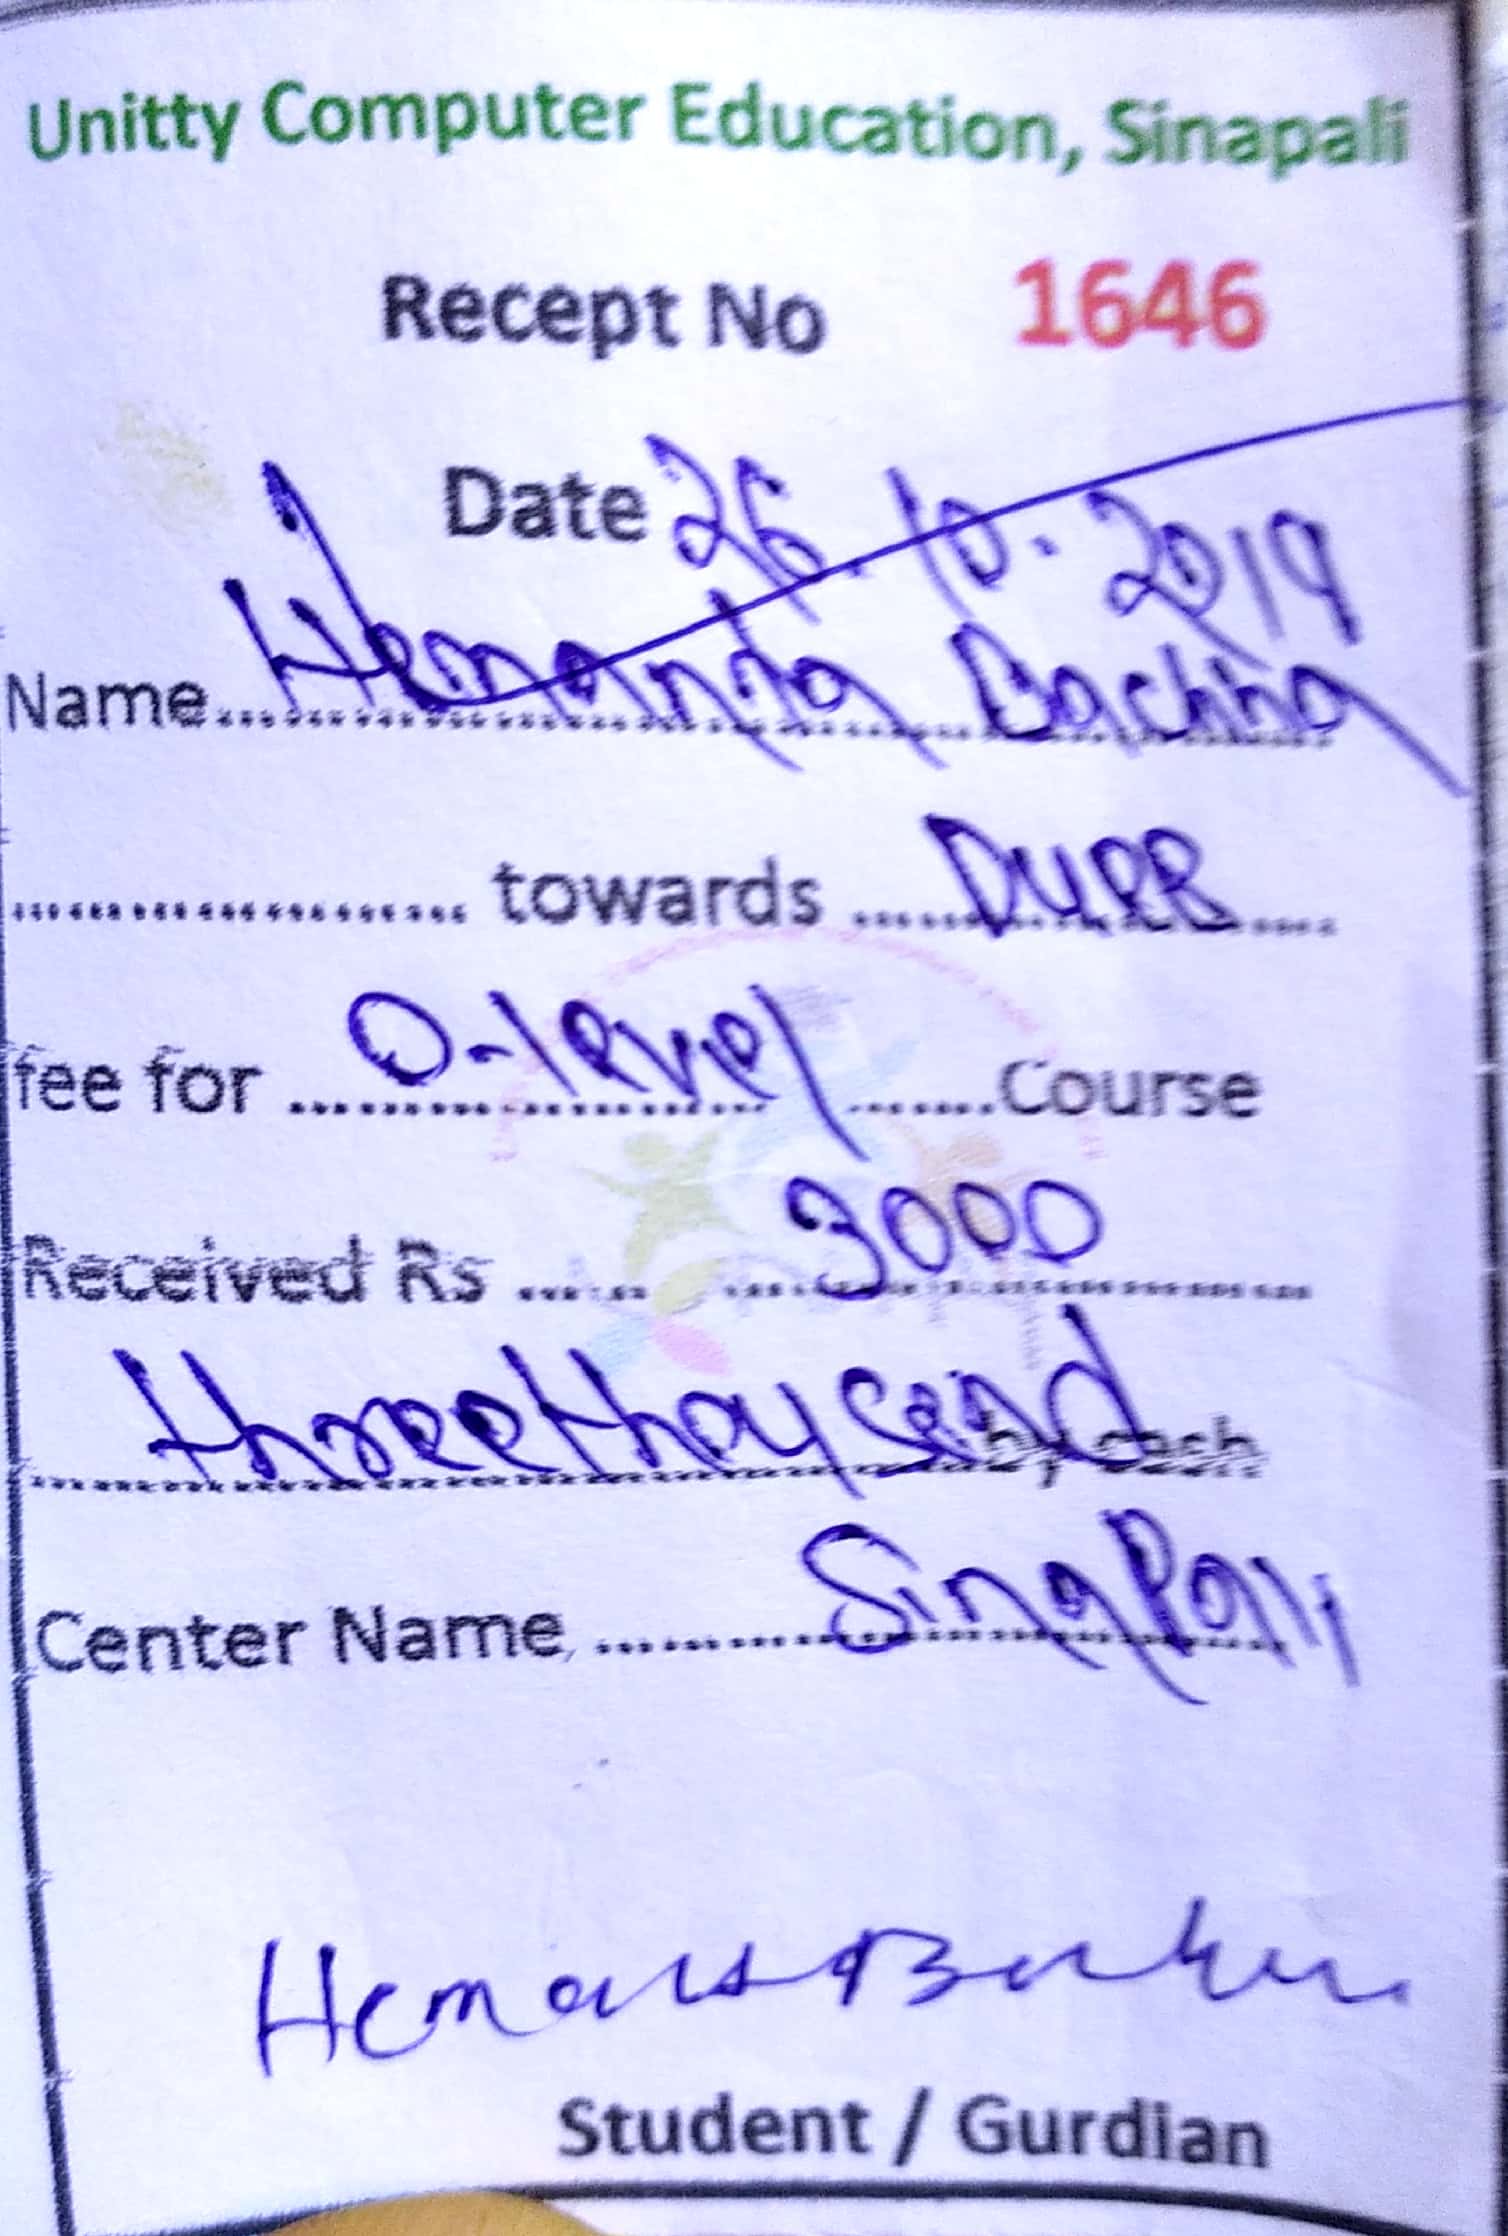 Unitty Computer Education, Sinapali
Recept No 1646
Date 26.10.2019
Name Hemanta Bachha
towards
fee for O-level Course
Received Rs 3000
threethousand by cash
Center Name Sinapalli
Student / Gurdian